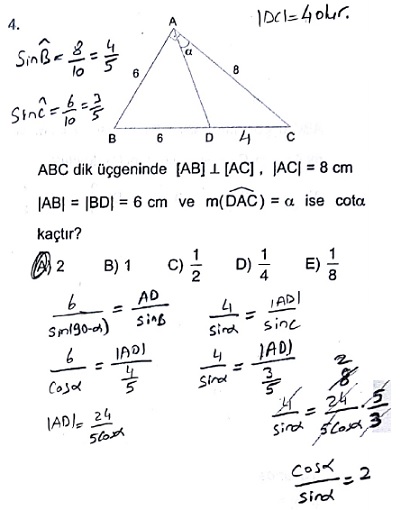 4.
|DC|=4 olur.
A
SinB̂ = 8/10 = 4/5
α
6
8
Sinĉ = 6/10 = 3/5
B 6 D 4 C
ABC dik üçgeninde [AB] ⊥ [AC] , |AC| = 8 cm
|AB| = |BD| = 6 cm ve m(DAC) = α ise cotα
kaçtır?
A) 2 B) 1 C) 1/2 D) 1/4 E) 1/8
6/sin(90-α) = AD/sinB 4/sinα = |AD|/sinC
6/cosα = |AD|/(4/5) 4/sinα = |AD|/(3/5)
2
8
|AD| = 24/5cosα 4/sinα = 24/5cosα · 5/3
cosα/sinα = 2